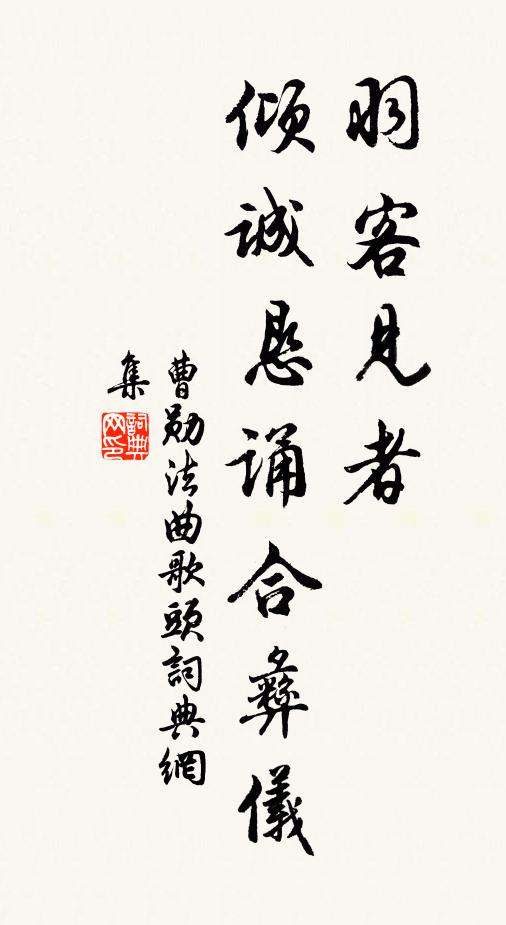 羽客見者
傾誠懸誦合彝儀
曹勛法曲歌頭詞典網
集
詞典網印